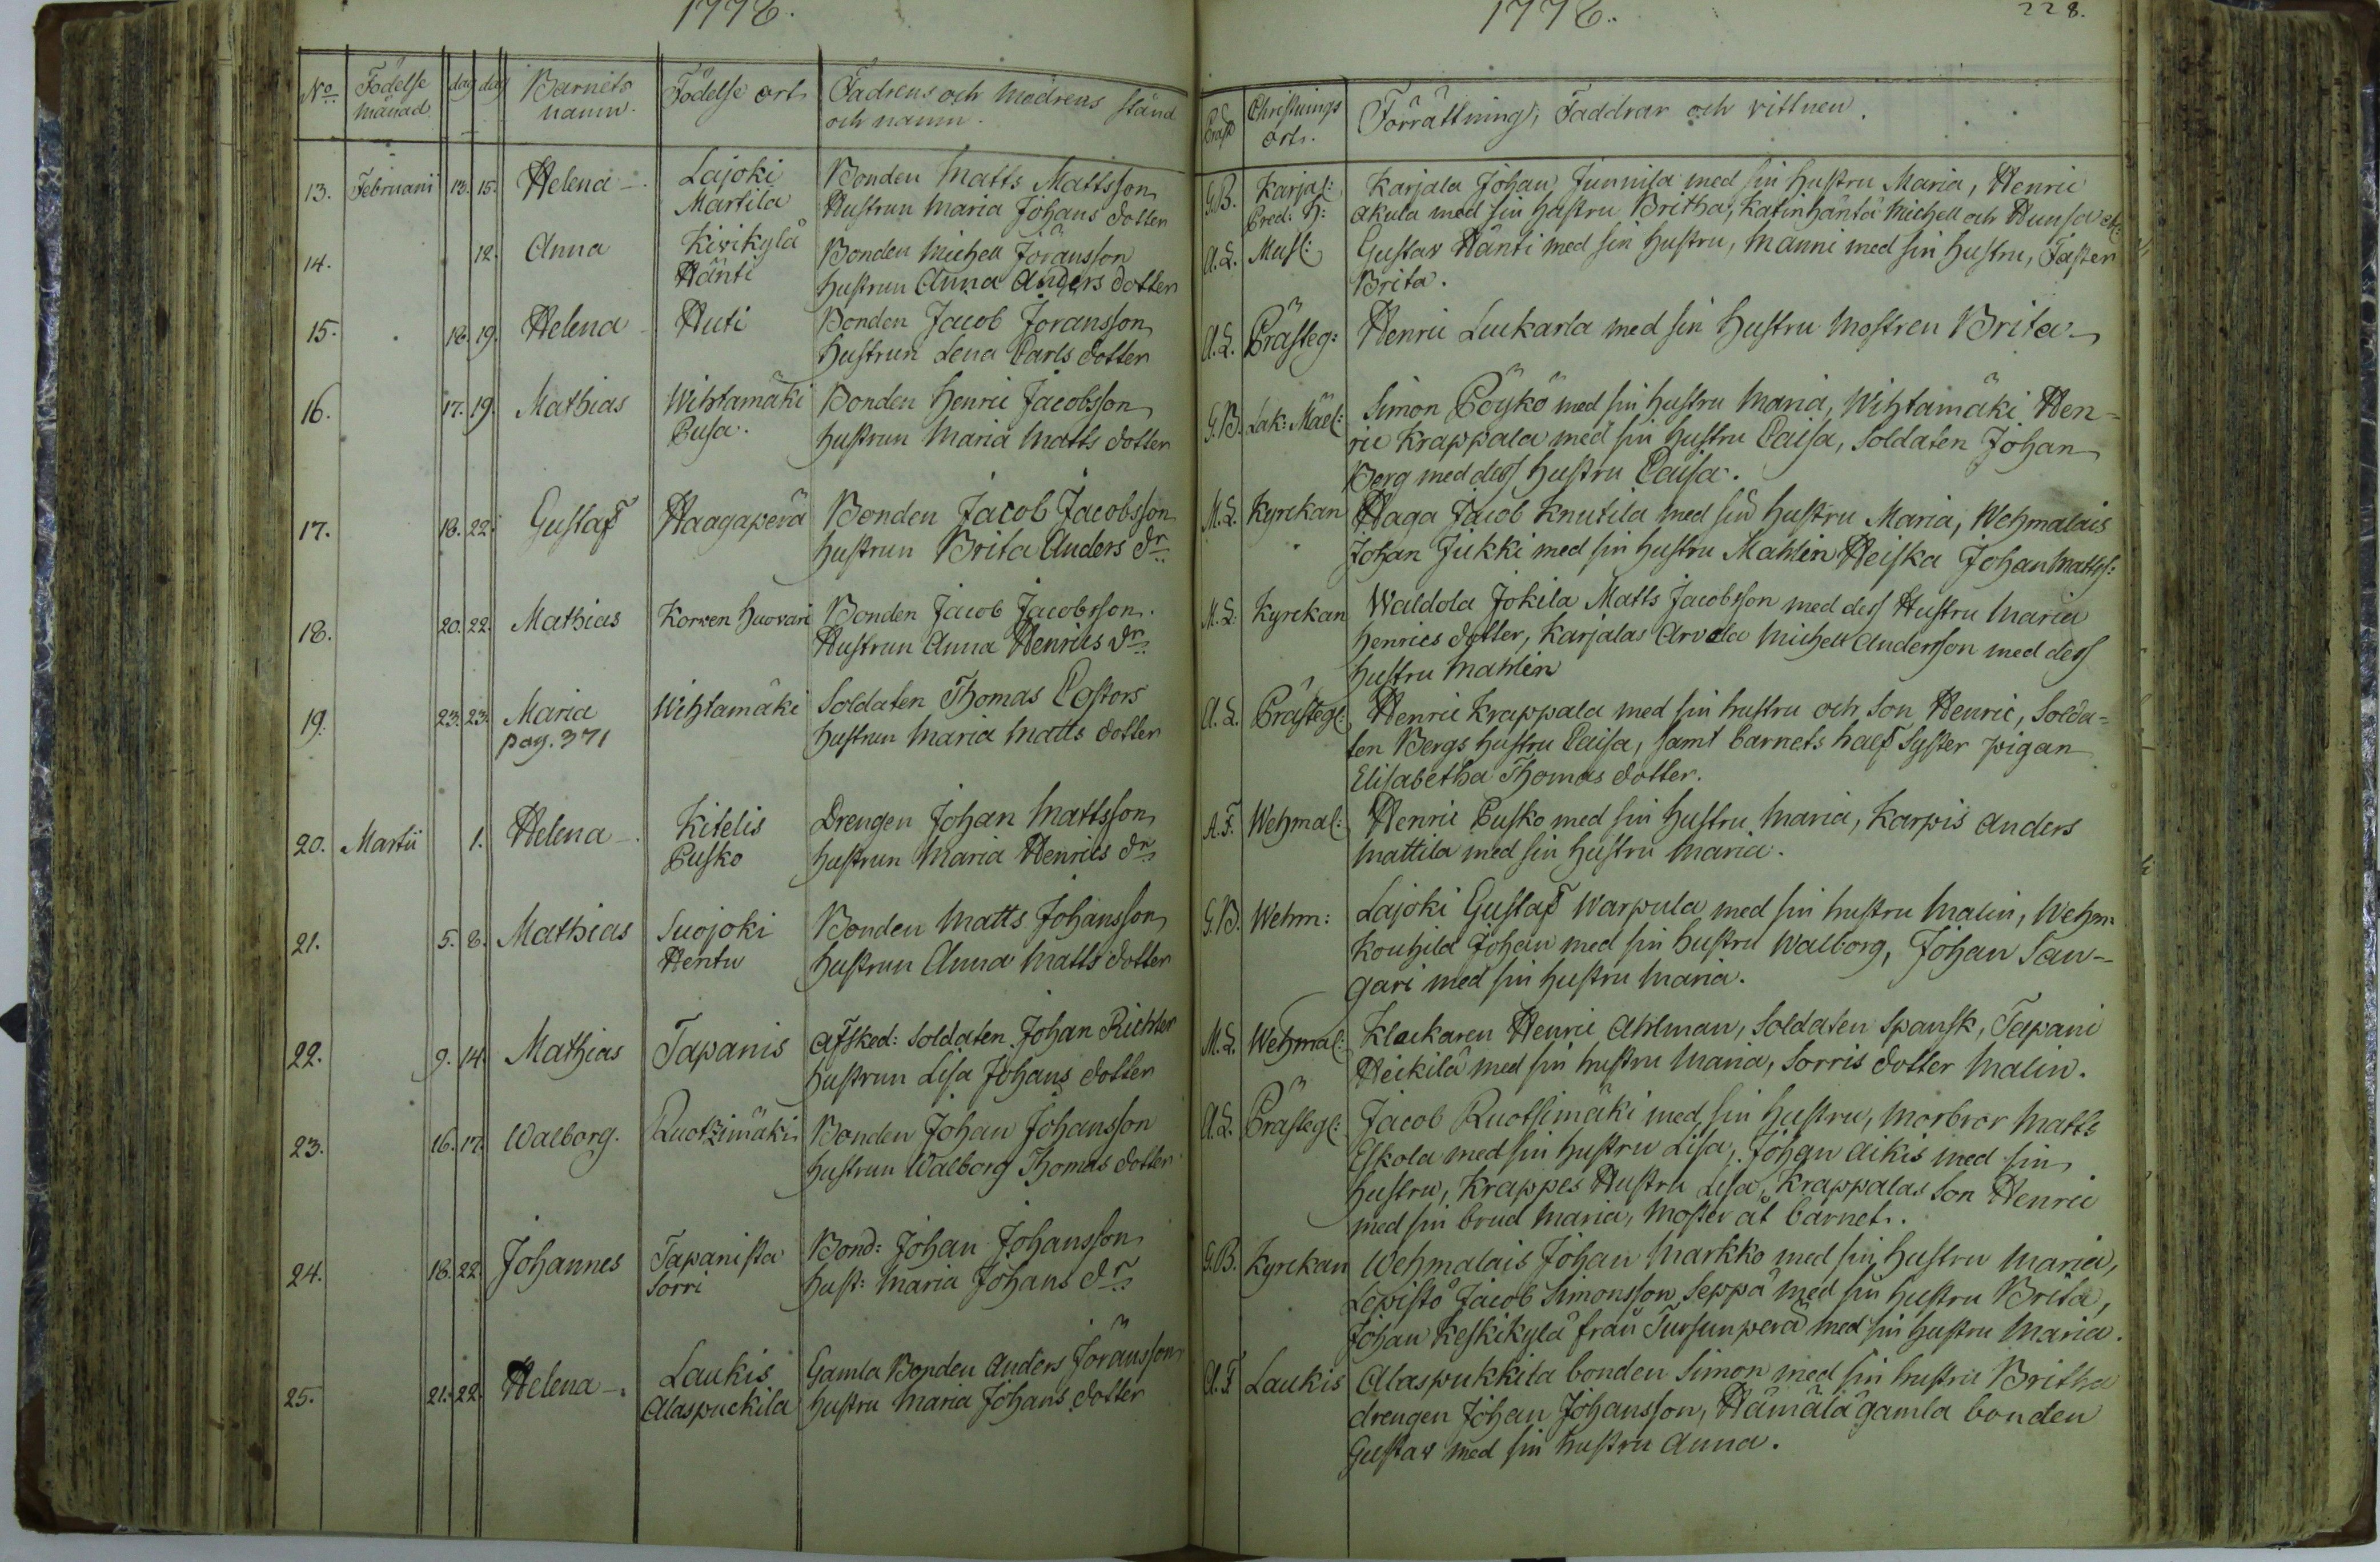 1776.
No. Födelse månad dag dag Barnets namn. Födelse ort Fadrens och modrens stånd och namn.
13. Februarii 13. 15. Helena Lajoki Bonden Matts Mattsson
Martila Hustrun Maria Johans dotter
14. 12. Anna Kivikylä Bonden Michell Jöransson
Hänti hustrun Anna Anders dotter
15. 18. 19. Helena Huti Bonden Jacob Jöransson
hustrun Lena Carls dotter
16. 17. 19. Mathias Wihtamäki Bonden Henric Jacobsson
Pusa. hustrun Maria Matts dotter
17. 18. 22. Gustaf Haagaperä Bonden Jacob Jacobsson
hustrun Brita Anders dr.
18. 20. 22. Mathias Korven Huovari Bonden Jacob Jacobsson.
Hustrun Anna Henrics dr.
19. 23. 23. Maria Wihtamäki Soldaten Thomas Castors
pag. 371 hustrun Maria Matts dotter
20. Martii 1. Helena Kitelis Drengen Johan Mattsson
Pusko hustrun Maria Henrics dr.
21. 5. 8. Mathias Suojoki Bonden Matts Johansson
Hentu hustrun Anna Matts dotter
22. 9. 14. Mathias Tapanis Afsked: Soldaten Johan Richter
hustrun Lisa Johans dotter
23. 16. 17. Walborg. Ruotzimäki Bonden Johan Johansson
hustrun Walborg Thomas dotter
24. 18. 22. Johannes Tapanista Bond: Johan Johansson
Sorri hust: Maria Johans dr.
25. 21. 22. Helena Laukis Gamla Bonden Anders Jöransson
Alaspuckila hustru Maria Johans dotter
1776.
228.
Präst Christnings ort. Förrättning, Faddrar och vittnen.
G.B. Karjal: Karjala Johan Junnila med sin hustru Maria, Henric
Pred: H: Akula med sin hustru Britha, Katinhäntä Michell och
A.L. Must: Gustav Hänti med sin hustru, Manni med sin hustru, Faster
Brita.
A.L. Prästeg: Henric Leukarla med sin hustru Mostren Brita
G.B. Lak: Mäel: Simon Pöykö med sin hustru Maria, Wihtamäki Hen-
ric Krappala med sin hustru Caisa, Soldaten Johan
Berg med dess hustru Caisa.
M.L. Kyrckan Haga Jacob Knutila med sin hustru Maria, Wehmalais
Johan Jukki med sin hustru Mahlin Heiska Johan Matts:
M.L. Kyrckan Waldola Jokila Matts Jacobsson med dess Hustru Maria
Henrics dotter, Karjalas Arvela Michell Andersson med dess
hustru Mahlin
A.L. Prästegl: Henric Krappala med sin hustru och Son Henric, Solda-
ten Bergs hustru Caisa, samt barnets half Syster pigan
Elisabetha Thomas dotter.
A.F. Wehmal: Henric Pusko med sin hustru Maria, Karpis Anders
Mattila med sin hustru Maria.
G.B. Wehm: Lajoki Gustaf Warpula med sin hustru Malin, Wehm:
Kouhila Johan med sin hustru Walborg, Johan San-
gari med sin hustru Maria.
M.L. Wehmal: Klackaren Henric Ahlman, Soldaten Spansk, Tapani
Heikilä med sin hustru Maria, Sorris dotter Malin.
A.L. Prästegl: Jacob Ruotsimäki med sin hustru, Morbror Matts
Eskola med sin hustru Lisa, Johan Aikis med sin
hustru, Krappes Hustru Lisa, Krappalas Son Henric
med sin brud Maria, Moster åt barnet.
G.B. Kyrckan Wehmalais Johan Markko med sin hustru Maria,
Lepistö Jacob Simonsson Seppä med sin hustru Brita,
Johan Keskikylä från Tursunperä med sin hustru Maria.
A.F. Laukis Alaspukkila bonden Simon med sin hustru Britha
drengen Johan Johansson, Hämälä gamla bonden
Gustav med sin hustru Anna.